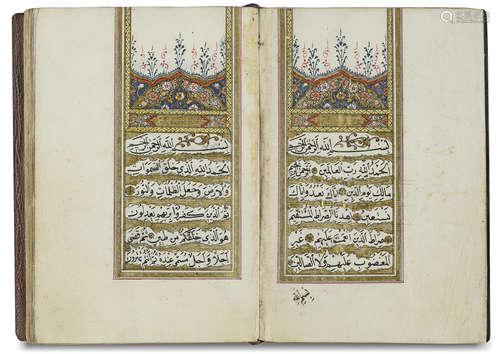 بسم الله الرحمن الرحيم
الحمد لله رب العالمين
مالك يوم الدين اياك نعبد واياك
نستعين اهدنا الصراط المستقيم
صراط الذين انعمت عليهم غير
المغضوب عليهم ولا الضالين
بسم الله الرحمن الرحيم
الحمد لله الذي خلق السموات
والارض وجعل الظلمات والنور
ثم الذين كفروا بربهم يعدلون
هو الذي خلقكم من طين ثم قضى
اجلا واجل مسمى عنده ثم انتم تمترون